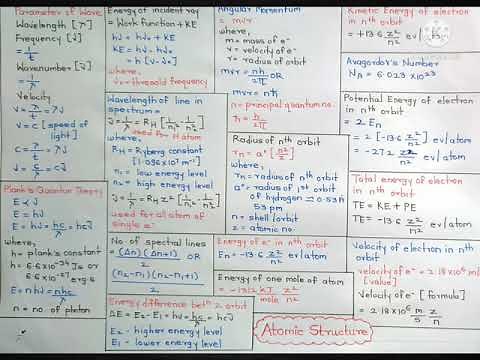 Parameter of Wave
Wavelength [λ]
Frequency [ν]
= 1/t
Wavenumber [ν̄]
= 1/λ
Velocity
v = λ/t = λν
v = c [speed of light]
c = λ/t = λν
ν̄ = ν/c
Plank's Quantum Theory
E ∝ ν
E = hν
E = hν = hc/λ = hcν̄
where,
h = plank's constant
h = 6.6×10⁻³⁴ Js or
6.6×10⁻²⁷ erg.s
E = nhν = nhc/λ
n = no. of photon
Energy of incident ray =
Work function + KE
hν = hν₀ + KE
KE = hν - hν₀
= h [ν - ν₀]
where,
ν₀ = threshold frequency
Wavelength of line in
spectrum =
ν̄ = 1/λ = RH [1/n₁² - 1/n₂²]
used for H atom
where,
RH = Ryberg constant
[1.096×10⁷ m⁻¹]
n₁ = low energy level
n₂ = high energy level
ν̄ = 1/λ = RH z² [1/n₁² - 1/n₂²]
used for all atom of
single e⁻
No. of spectral lines
= (Δn)(Δn+1)/2
= (n₂-n₁)(n₂-n₁+1)/2
Energy difference betⁿ 2 orbit
ΔE = E₂ - E₁ = hν = hc/λ = hcν̄
E₂ - higher energy level
E₁ - lower energy level
Angular Momentum
= mvr
where,
m = mass of e⁻
v = velocity of e⁻
r = radius of orbit
mvr = nh/2π OR
mvr = nħ
n = principal quantum no.
ħ = h/2π
Radius of nth orbit
rn = a° [n²/z]
where,
rn = radius of nth orbit
a° = radius of 1st orbit
of hydrogen = 0.53 Å
53 pm
n = shell/orbit
z = atomic no.
Energy of e⁻ in nth orbit
En = -13.6 z²/n²
Energy of one mole of atom
= -1312 kJ z²/n²
mole
Atomic Structure
Kinetic Energy of electron
in nth orbit
= +13.6 z²/n²
Avagardo's Number
NA = 6.023×10²³
Potential Energy of electron
in nth orbit
= 2 En
= 2 [-13.6 z²/n²] ev/atom
= -27.2 z²/n² ev/atom
Total energy of electron
in nth orbit
TE = KE + PE
TE = -13.6 z²/n² ev/atom
Velocity of electron in nth
orbit
velocity of e⁻ = 2.18×10⁶ m/s
[value]
Velocity of e⁻ [formula]
= 2.18×10⁶ m/s z/n